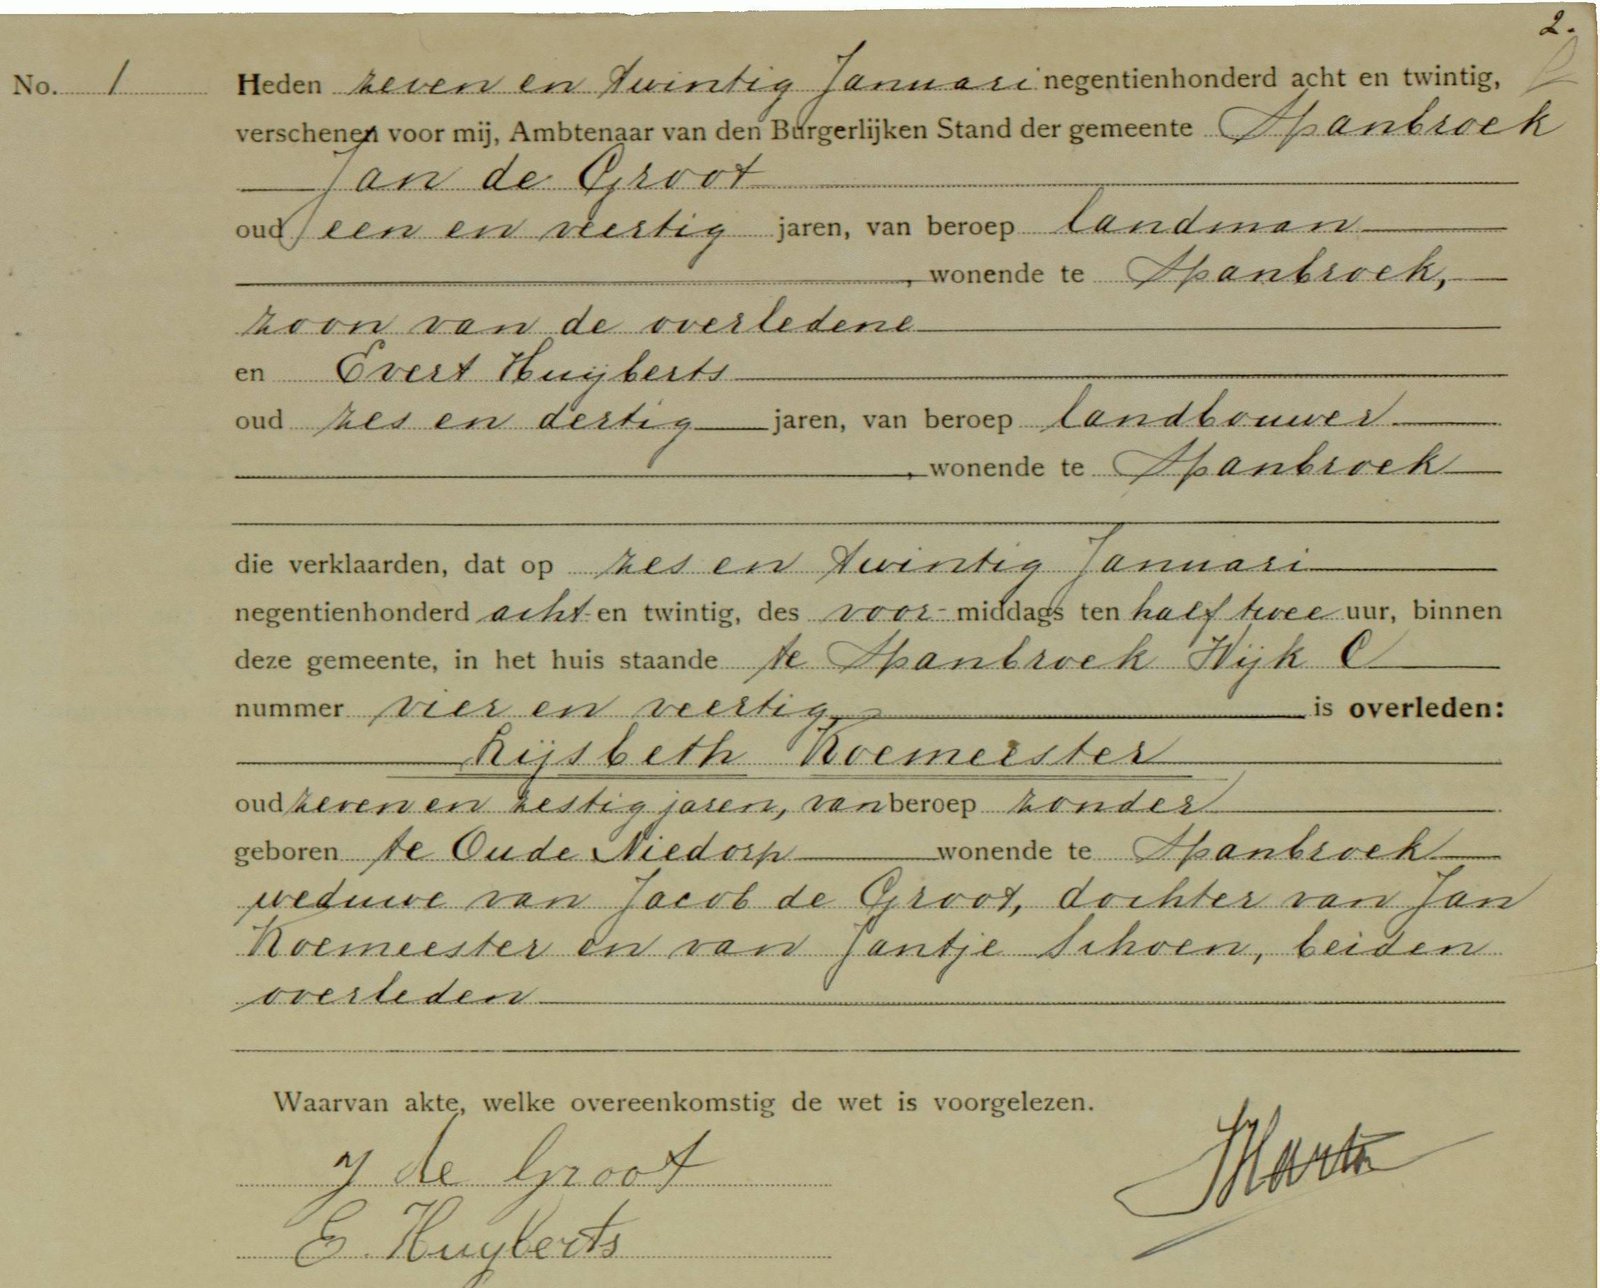 2.
No. 1 Heden zeven en twintig Januari negentienhonderd acht en twintig,
verschenen voor mij, Ambtenaar van den Burgerlijken Stand der gemeente Spanbroek
Jan de Groot
oud een en veertig jaren, van beroep landman
, wonende te Spanbroek,
zoon van de overledene
en Evert Huijberts
oud zes en dertig jaren, van beroep landbouwer
, wonende te Spanbroek
die verklaarden, dat op zes en twintig Januari
negentienhonderd acht en twintig, des voor- middags ten half twee uur, binnen
deze gemeente, in het huis staande te Spanbroek Wijk C
nummer vier en veertig is overleden:
Lijsbeth Koemeester
oud zeven en zestig jaren, van beroep zonder
geboren te Oude Niedorp wonende te Spanbroek
weduwe van Jacob de Groot, dochter van Jan
Koemeester en van Jantje Schoen, beiden
overleden
Waarvan akte, welke overeenkomstig de wet is voorgelezen.
J de Groot
E. Huyberts